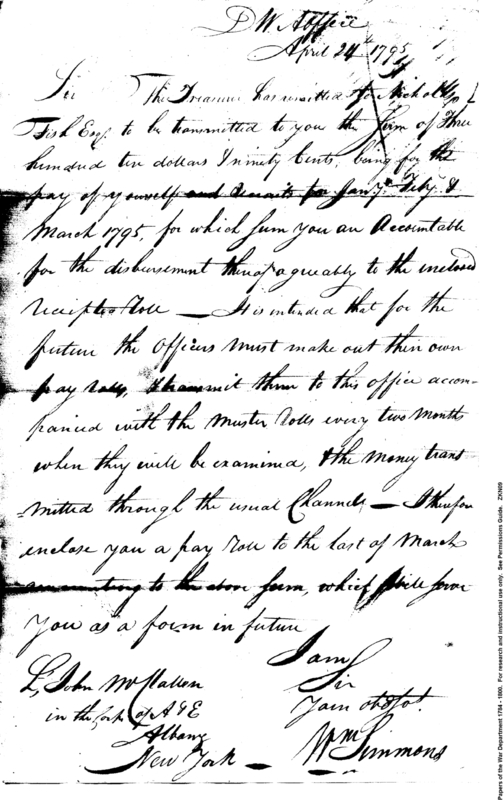 D W A Office
April 24th 1795
Sir The Treasurer has remitted to Nicholas
Fish Esqr. to be transmitted to you the Sum of Three
hundred ten dollars & ninety Cents, being for the
pay of yourself and recruits for Jany. Feby. &
March 1795, for which sum you are Accountable
for the disbursement thereof agreeably to the inclosed
receipted Roll — It is intended that for the
future the Officers must make out their own
pay rolls, & transmit them to this office accom-
panied with the Muster Rolls every two Months
when they will be examined, & the money trans
mitted through the usual Channels — I therefore
enclose you a pay Roll to the last of March
amounting to the above sum, which will serve
you as a form in future
I am
Sir
Your obdt Svt.
Wm Simmons
Lt. John McClallen
in the Corps of A & E
Albany
New York —
Papers of the War Department 1784 - 1800. For research and instructional use only. See Permissions Guide. ZKN09